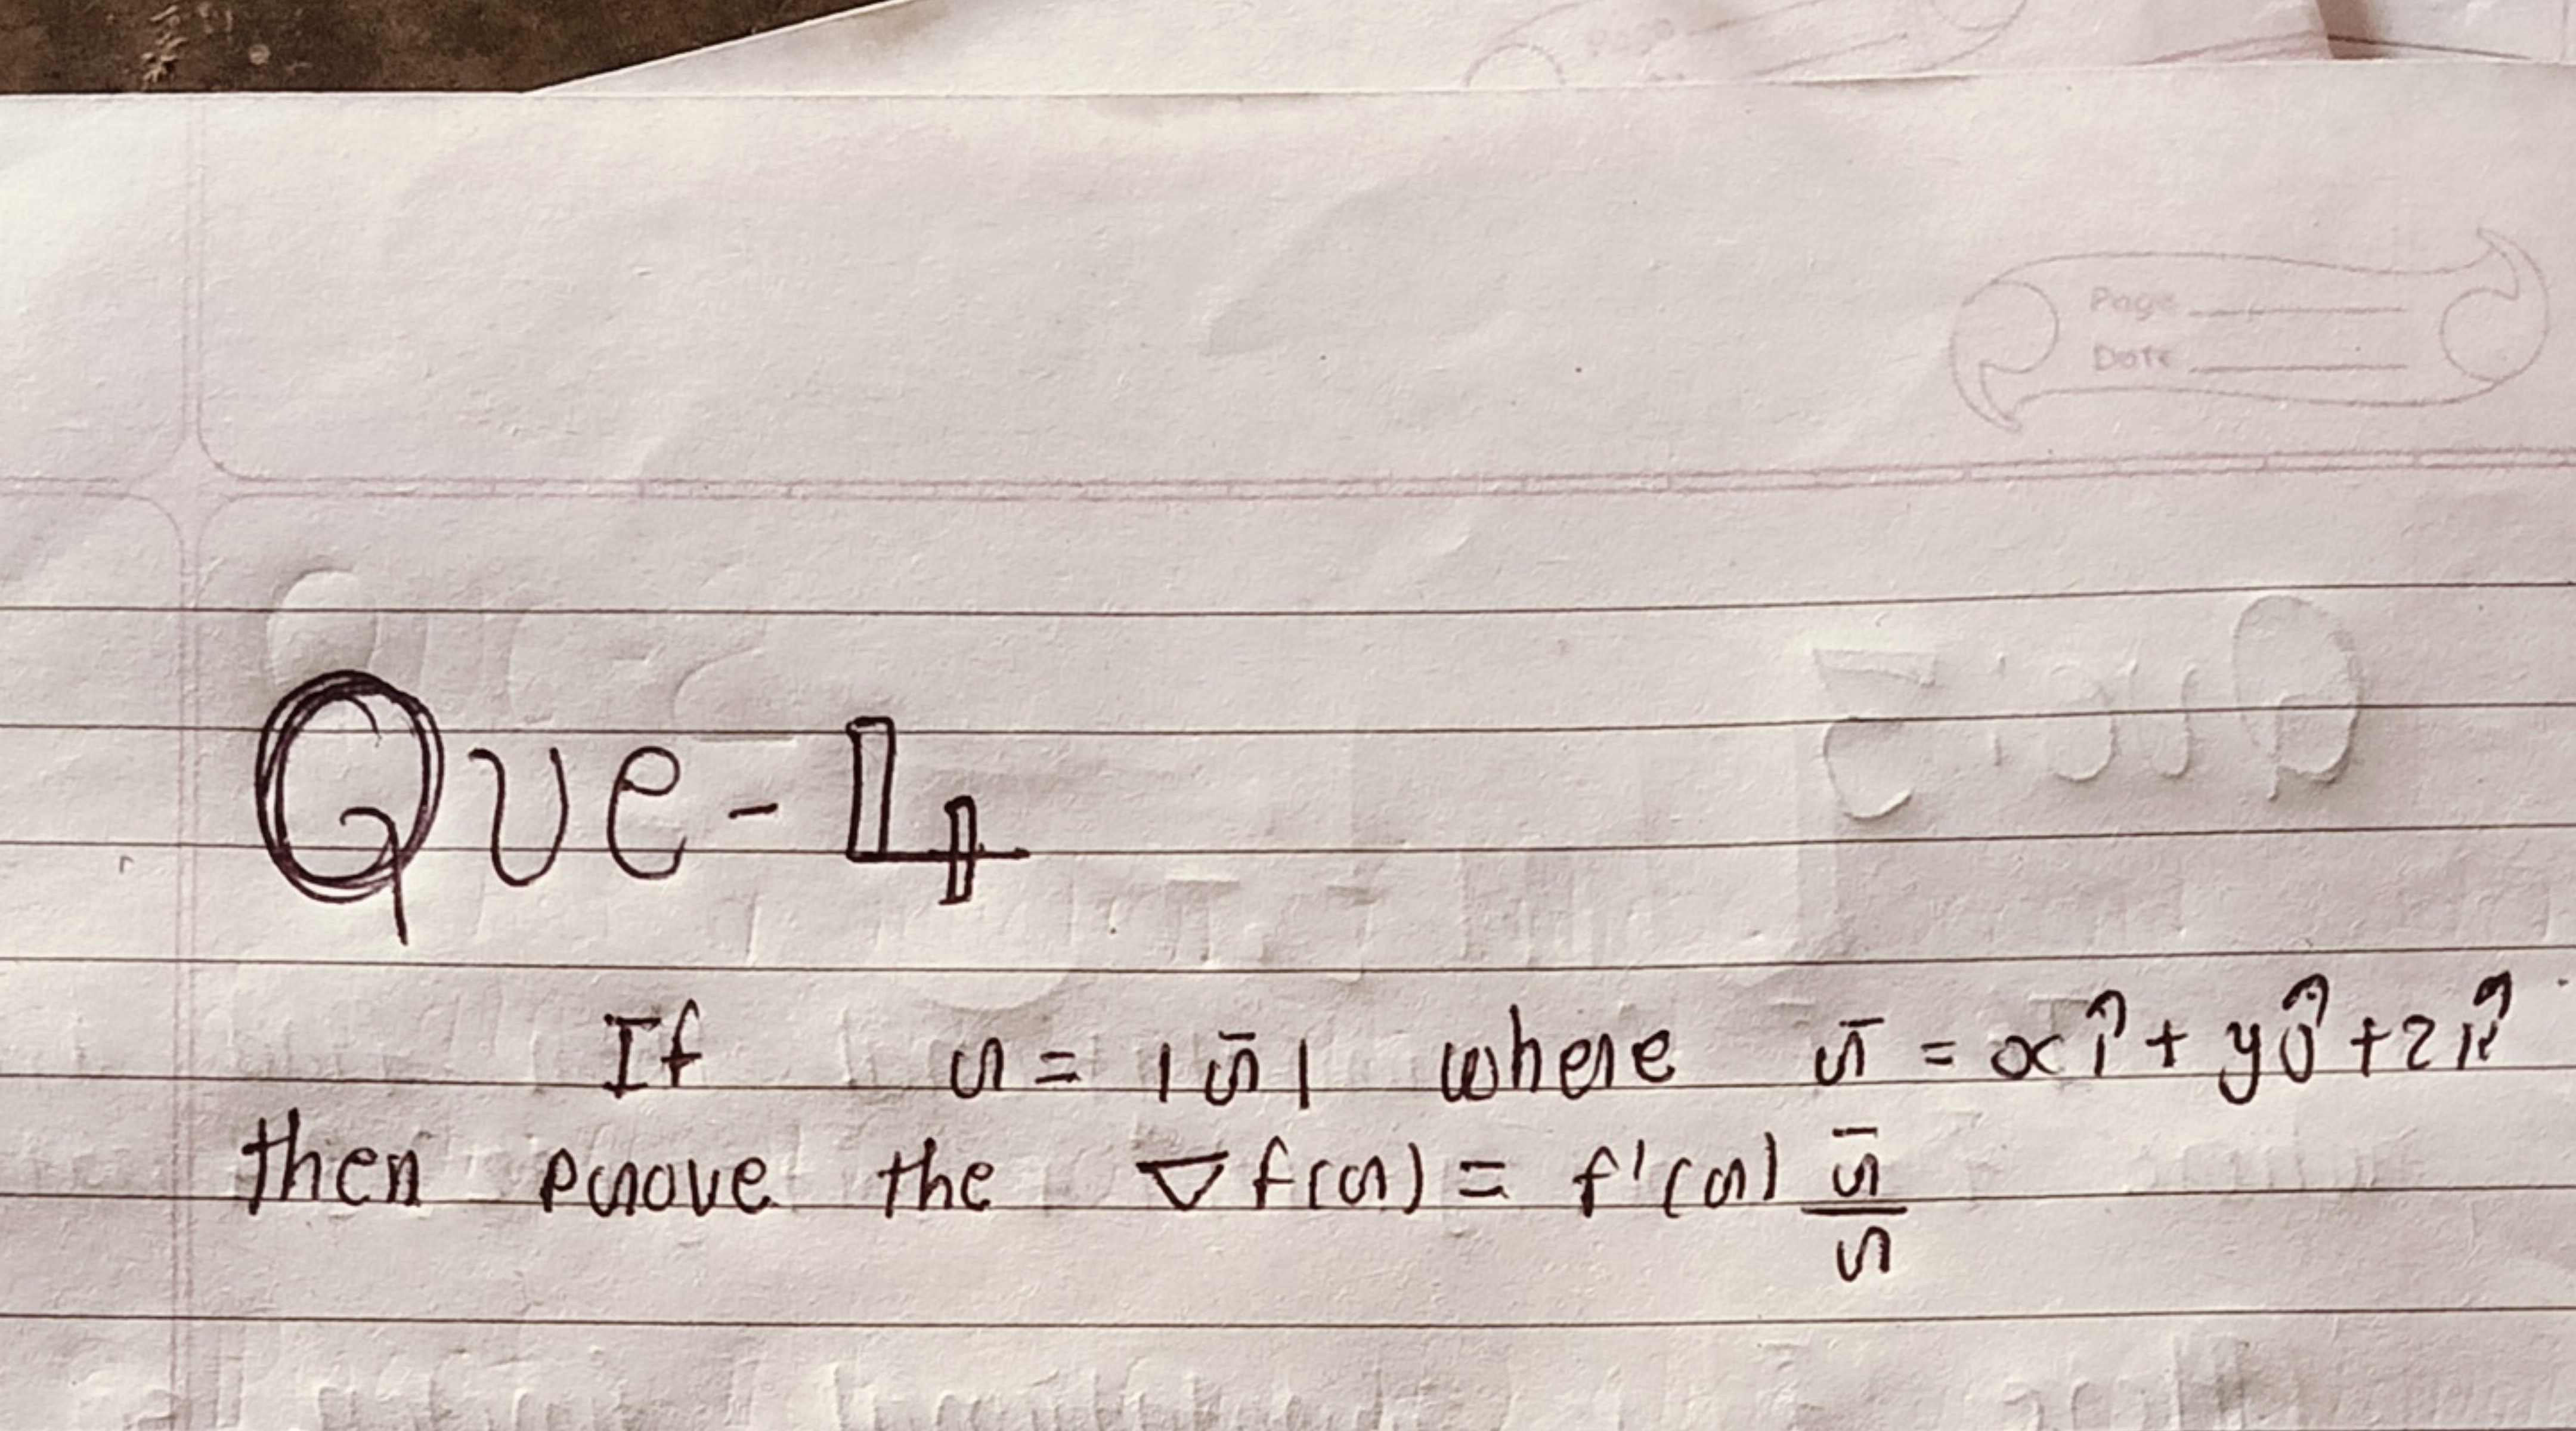 Page
Date
Que-4
If r = |r̄| where r̄ = xî + yĵ + zk̂
then prove the ∇f(r) = f'(r) r̄/r